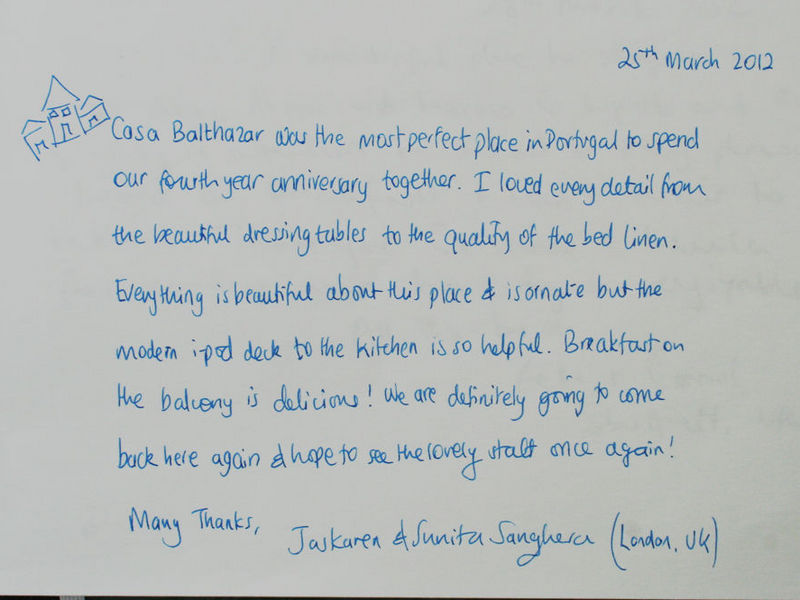 25th March 2012
Casa Balthazar was the most perfect place in Portugal to spend
our fourth year anniversary together. I loved every detail from
the beautiful dressing tables to the quality of the bed linen.
Everything is beautiful about this place & is ornate but the
modern i-pod deck to the kitchen is so helpful. Breakfast on
the balcony is delicious! We are definitely going to come
back here again & hope to see the lovely staff once again!
Many Thanks,
Jaskaren & Sunita Sanghera (London, UK)